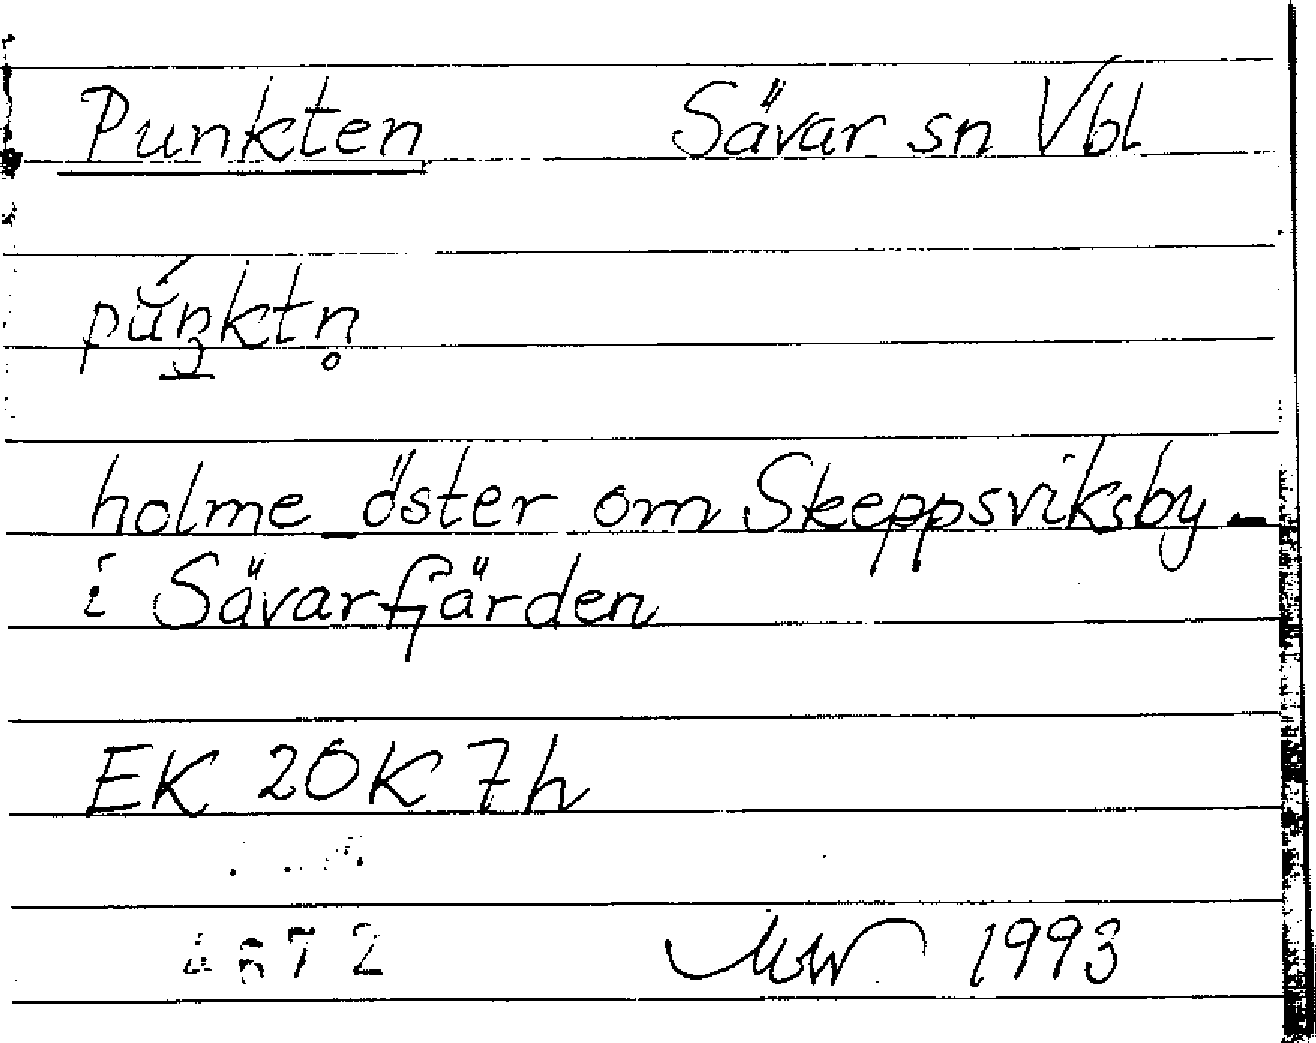 Punkten Sävar sn Vbl
holme öster om Skeppsviksby -
i Sävarfjärden
EK 20K 7h
1993